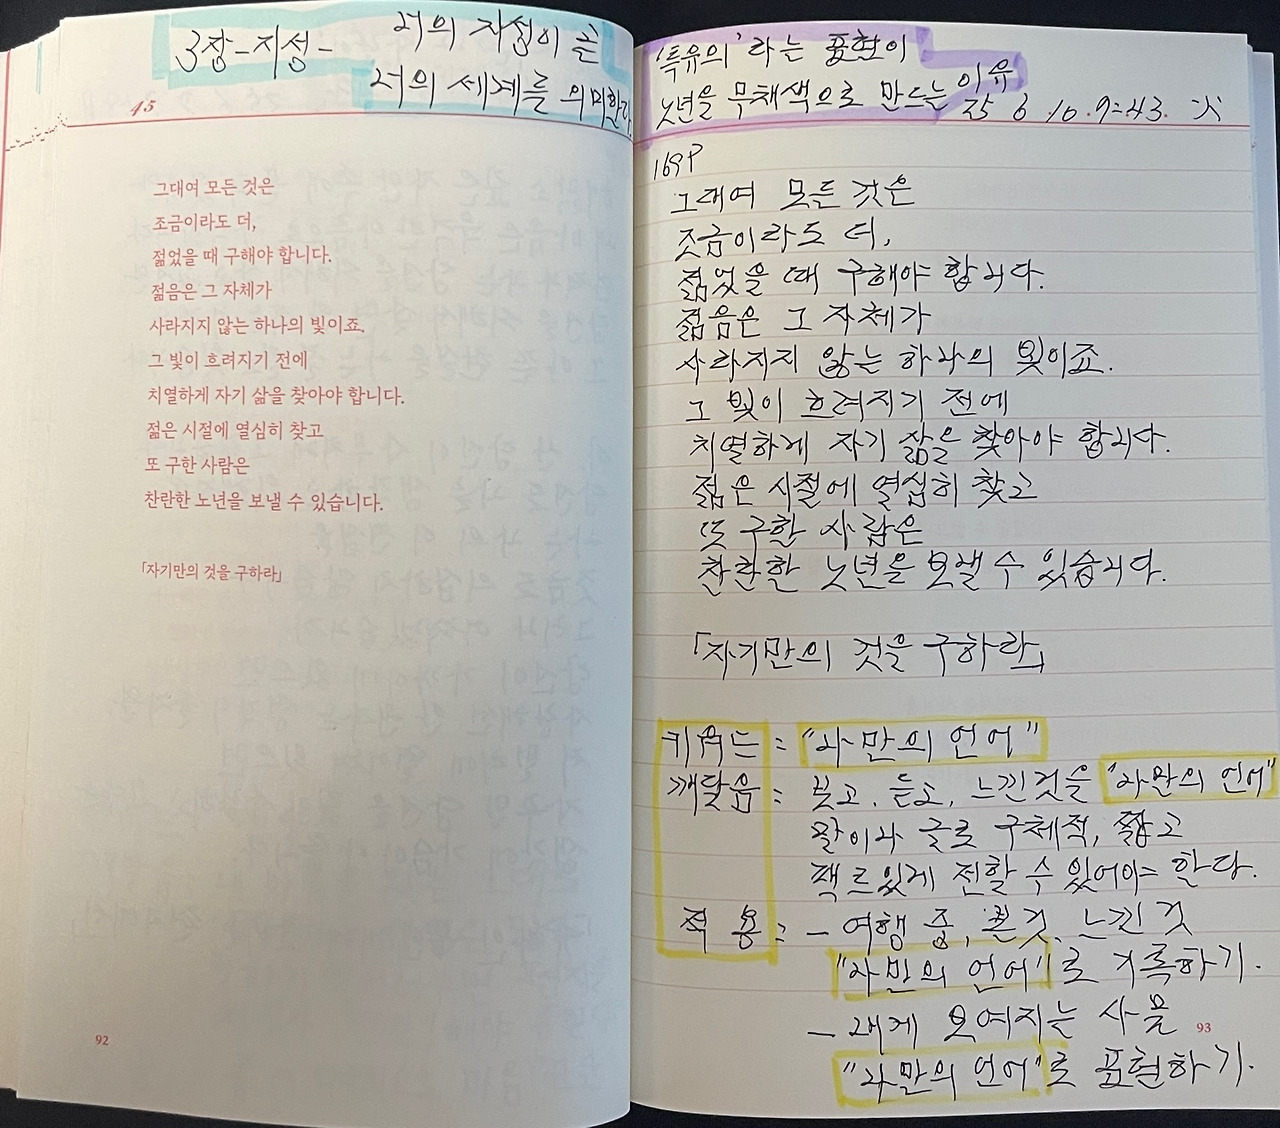 3장-지성- 너의 지성이 곧
너의 세계를 의미한다.
45
그대여 모든 것은
조금이라도 더,
젊었을 때 구해야 합니다.
젊음은 그 자체가
사라지지 않는 하나의 빛이죠.
그 빛이 흐려지기 전에
치열하게 자기 삶을 찾아야 합니다.
젊은 시절에 열심히 찾고
또 구한 사람은
찬란한 노년을 보낼 수 있습니다.
「자기만의 것을 구하라」
92
'특유의'라는 표현이
노년을 무채색으로 만드는 이유
25 6 .10.9:43. 火
169P
그대여 모든 것은
조금이라도 더,
젊었을 때 구해야 합니다.
젊음은 그 자체가
사라지지 않는 하나의 빛이죠.
그 빛이 흐려지기 전에
치열하게 자기 삶을 찾아야 합니다.
젊은 시절에 열심히 찾고
또 구한 사람은
찬란한 노년을 보낼 수 있습니다.
「자기만의 것을 구하라」
키워드 : "나만의 언어"
깨달음 : 보고, 듣고, 느낀것을 "나만의 언어"
말이나 글로 구체적, 짧고
팩트있게 전할 수 있어야 한다.
적 용 : - 여행 중, 본것, 느낀 것
"나만의 언어"로 기록하기.
- 내게 보여지는 사물
"나만의 언어"로 표현하기.
93